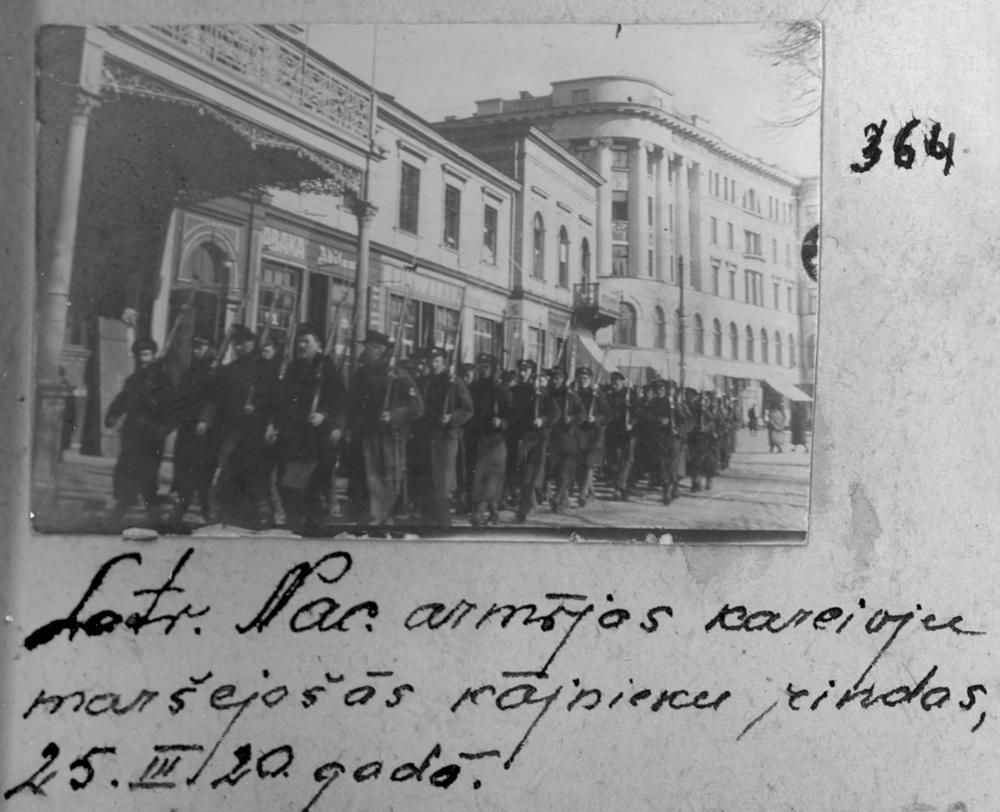 364
Latv. Nac. armijas kareivju
maršejošās kājnieku rindas,
25. III 20. gadā.